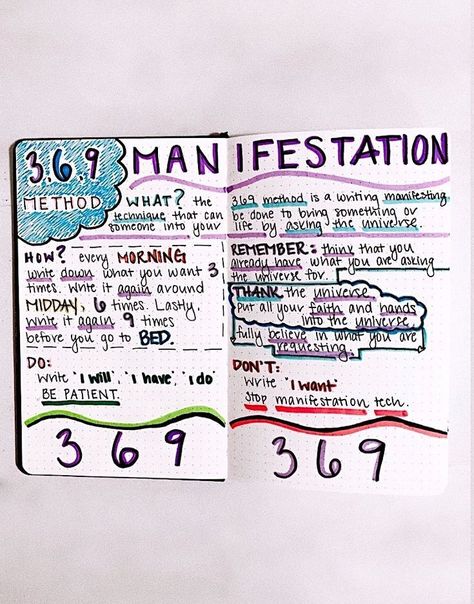 3.6.9
METHOD
MANIFESTATION
WHAT? the 369 method is a writing manifesting
technique that can be done to bring something or
someone into your life by asking the universe.
HOW? every MORNING
write down what you want 3
times. Write it again around
MIDDAY, 6 times. Lastly,
write it again 9 times
before you go to BED.
REMEMBER: think that you
already have what you are asking
the universe for.
THANK the universe.
Put all your faith and hands
into the universe.
fully believe in what you are
requesting.
DO:
Write "I will", "I have", "I do
BE PATIENT.
DON'T:
Write "I want"
Stop manifestation tech.
3 6 9
3 6 9